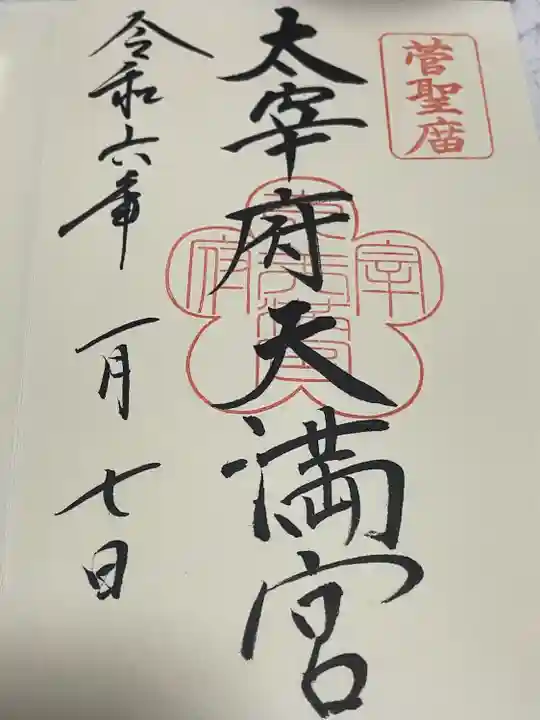 菅聖庿
太宰府天満宮
令和六年 一月 七日